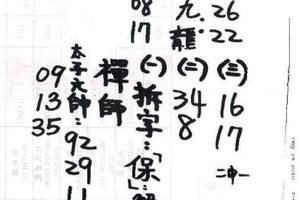 26
22
(三)
16
17
二中一
九龍:
(二)
34
8
08
17
(一)拆字:「保」:
禪師
太子大師:92
29
11
09
13
35